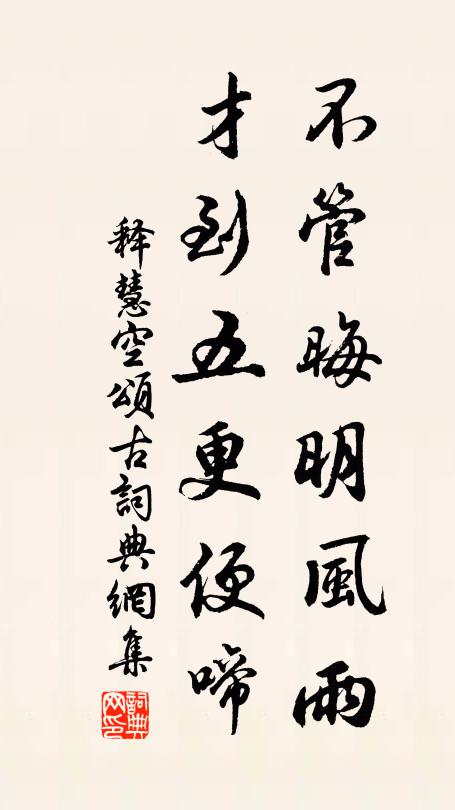 不管晦明風雨
才到五更便啼
释慧空頌古詞典網集
詞典网印